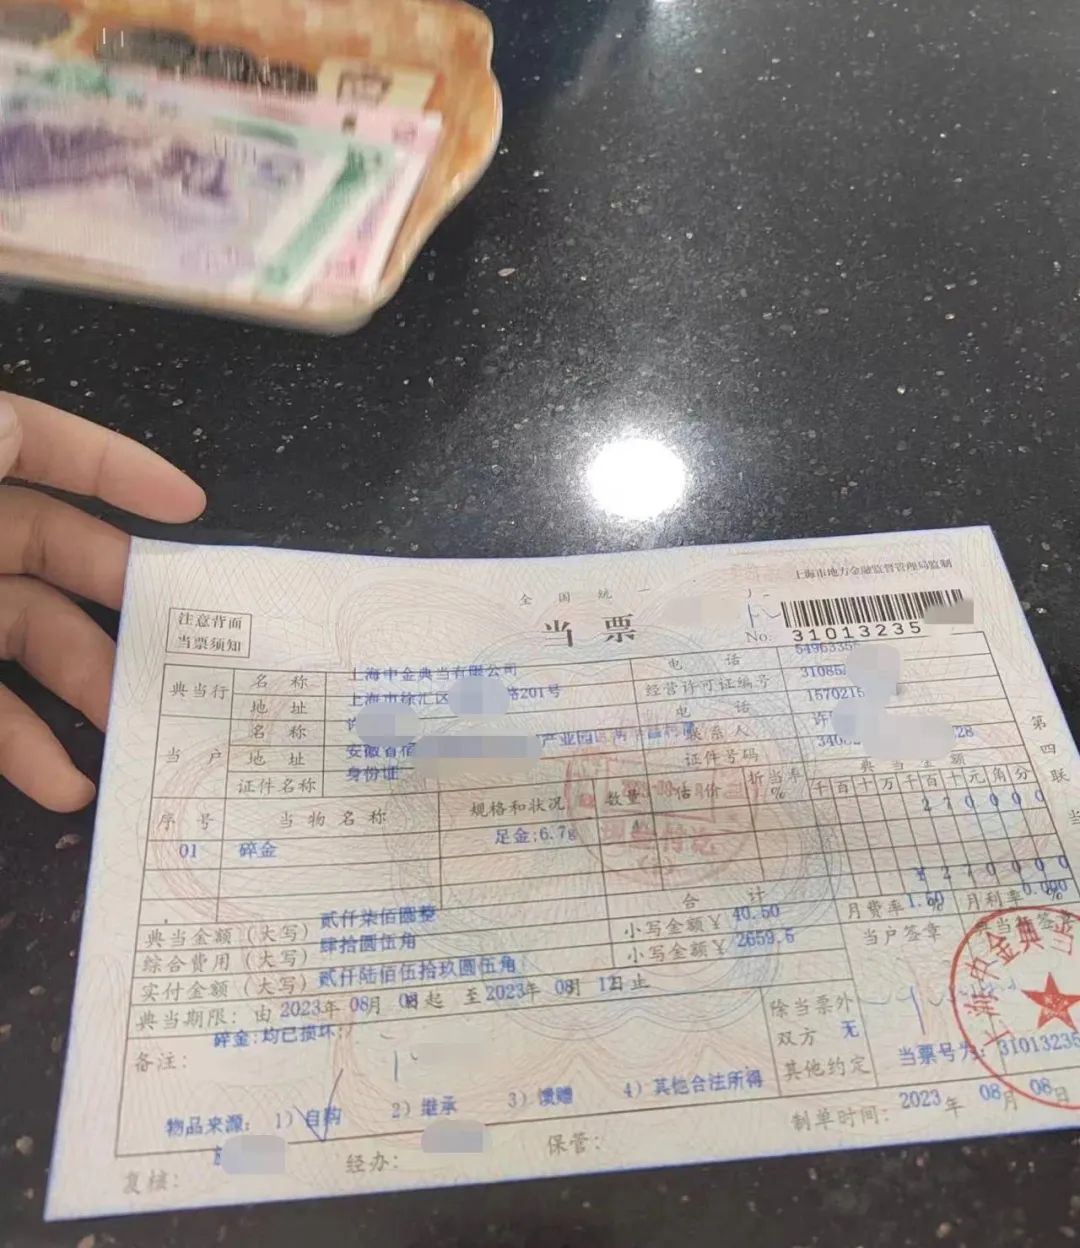 上海市地方金融监督管理局监制
全国统一
当票
注意背面
当票须知
No: 31013235
典当行 名称 上海申金典当有限公司 电话 5496335
地址 上海市徐汇区 路201号 经营许可证编号 31085
当户 名称 许 电话 1570215
地址 安徽省宿 产业园 联系人 许
证件名称 身份证 证件号码 340 28
序号 当物名称 规格和状况 数量 估价 折当率% 典当金额
千百十万千百十元角分
01 碎金 足金;6.7g 270000
合计 ¥270000
典当金额(大写) 贰仟柒佰圆整 月费率1.50% 月利率0.000%
综合费用(大写) 肆拾圆伍角 小写金额¥ 40.50
实付金额(大写) 贰仟陆佰伍拾玖圆伍角 小写金额¥ 2659.5
当户签章 典当行签章
典当期限: 由 2023年 08月 08 起 至 2023年 08月 止
备注: 碎金:均已损坏;
除当票外
双方 无
其他约定
当票号为: 31013235
物品来源: 1)自购 2)继承 3)馈赠 4)其他合法所得
制单时间: 2023年 08月 08日
复核: 经办: 保管:
第四联
上海申金典当